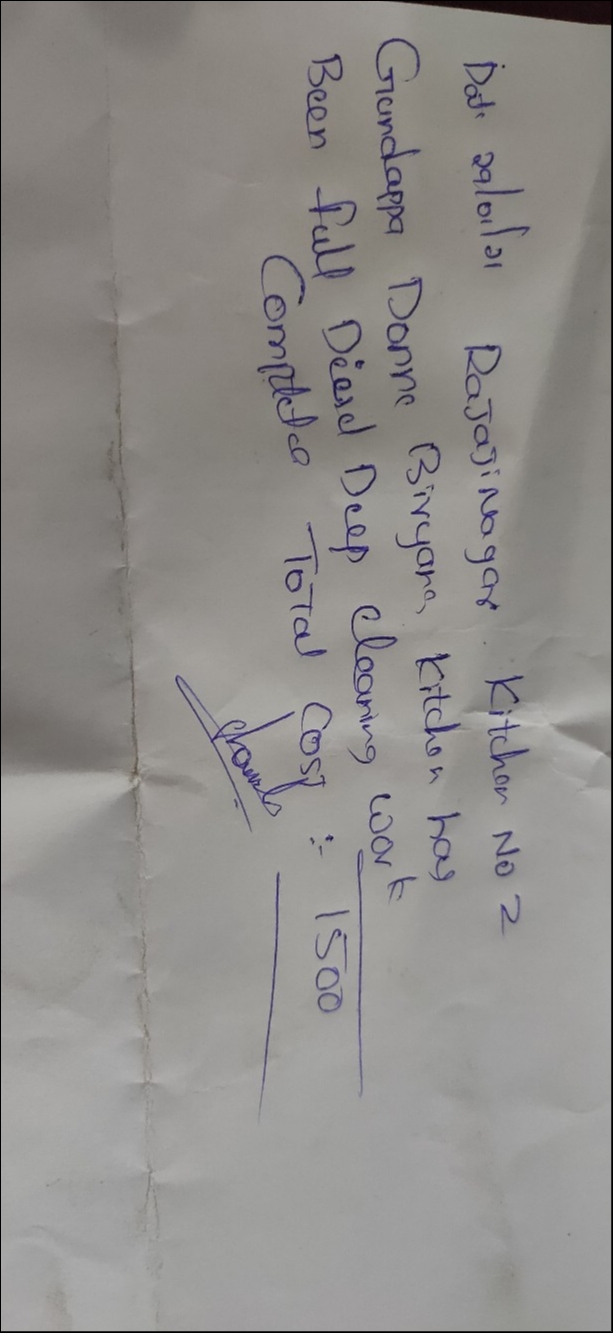 Date 29/01/21 Rajaji Nagar Kitchen No 2
Gundappa Donne Biryani Kitchen has
Been full Diesel Deep cleaning work
Completed Total Cost :- 1500